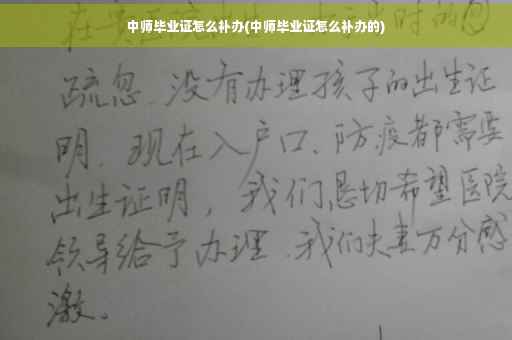 中师毕业证怎么补办(中师毕业证怎么补办的)
在 时的
疏忽、没有办理孩子的出生证
明、现在入户口、防疫都需要
出生证明，我们恳切希望医院
领导给予办理、我们夫妻万分感
激。